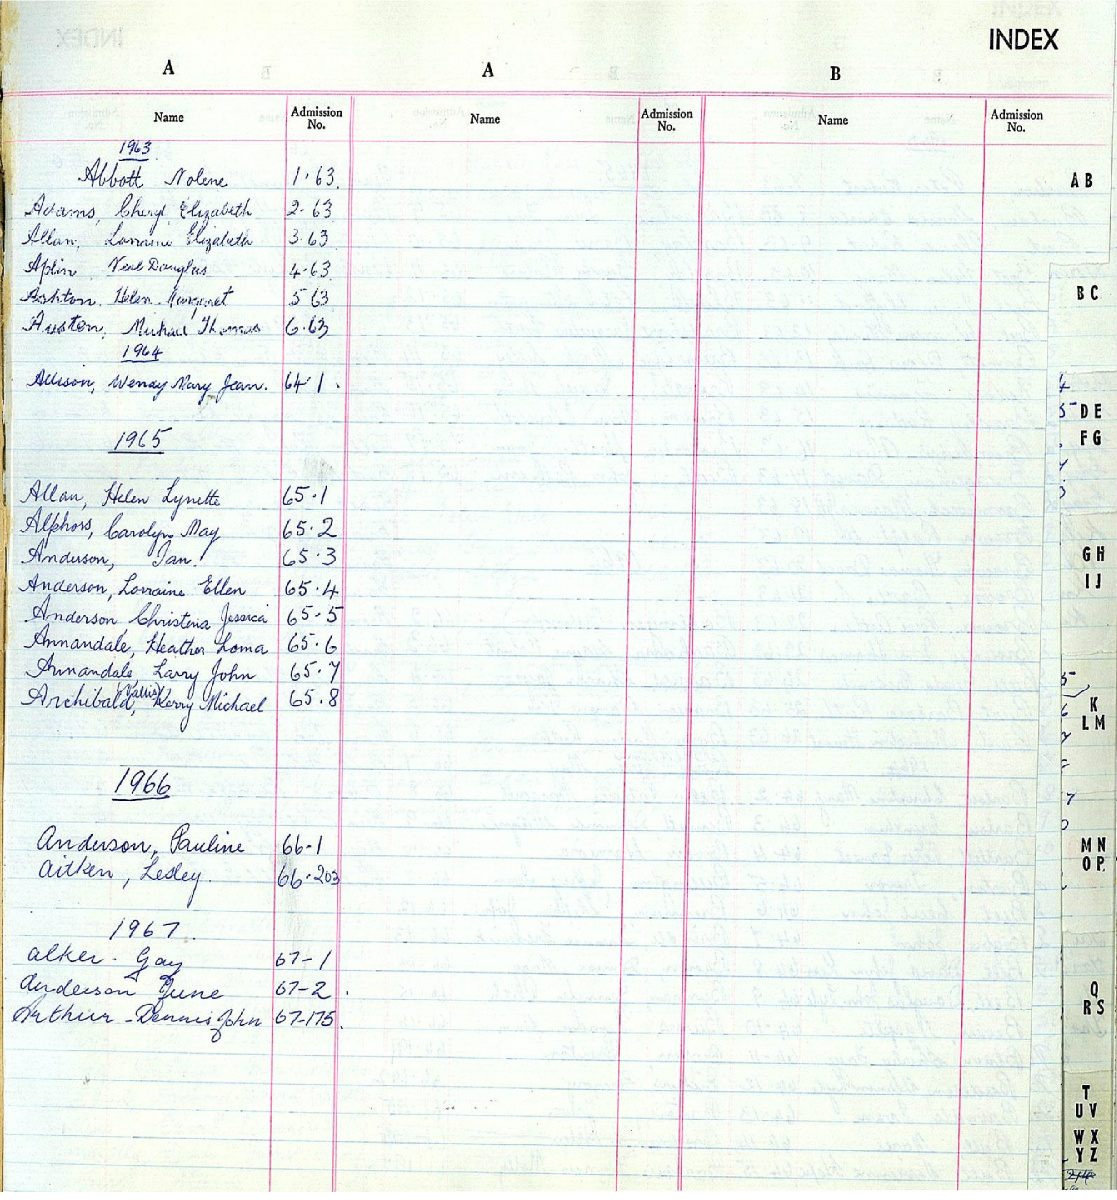 INDEX
A A B
Name Admission No. Name Admission No. Name Admission No.
1963
Abbott Nolene 1.63.
Adams, Cheryl Elizabeth 2.63
Allan, Lorraine Elizabeth 3.63
Aplin Neal Douglas 4.63
Ashton. Helen Margaret 5 63
Auston, Michael Thomas 6.63
1964
Allison, Wendy Mary Jean. 64 1.
1965
Allan, Helen Lynette 65.1
Alphors, Carolyn May 65.2
Anderson, Ian. 65.3
Anderson, Lorraine Ellen 65.4
Anderson Christena Jessica 65.5
Annandale, Heather Loma 65.6
Annandale, Larry John 65.7
Archibald, (Vallis) Kerry Michael 65.8
1966
Anderson, Pauline 66-1
Aitken, Lesley. 66.203
1967.
Alker - Gay 67-1
Anderson June 67-2.
Arthur - Dennis John 67-175.
A B
B C
D E
F G
G H
I J
K
L M
M N
O P
Q
R S
T
U V
W X
Y Z